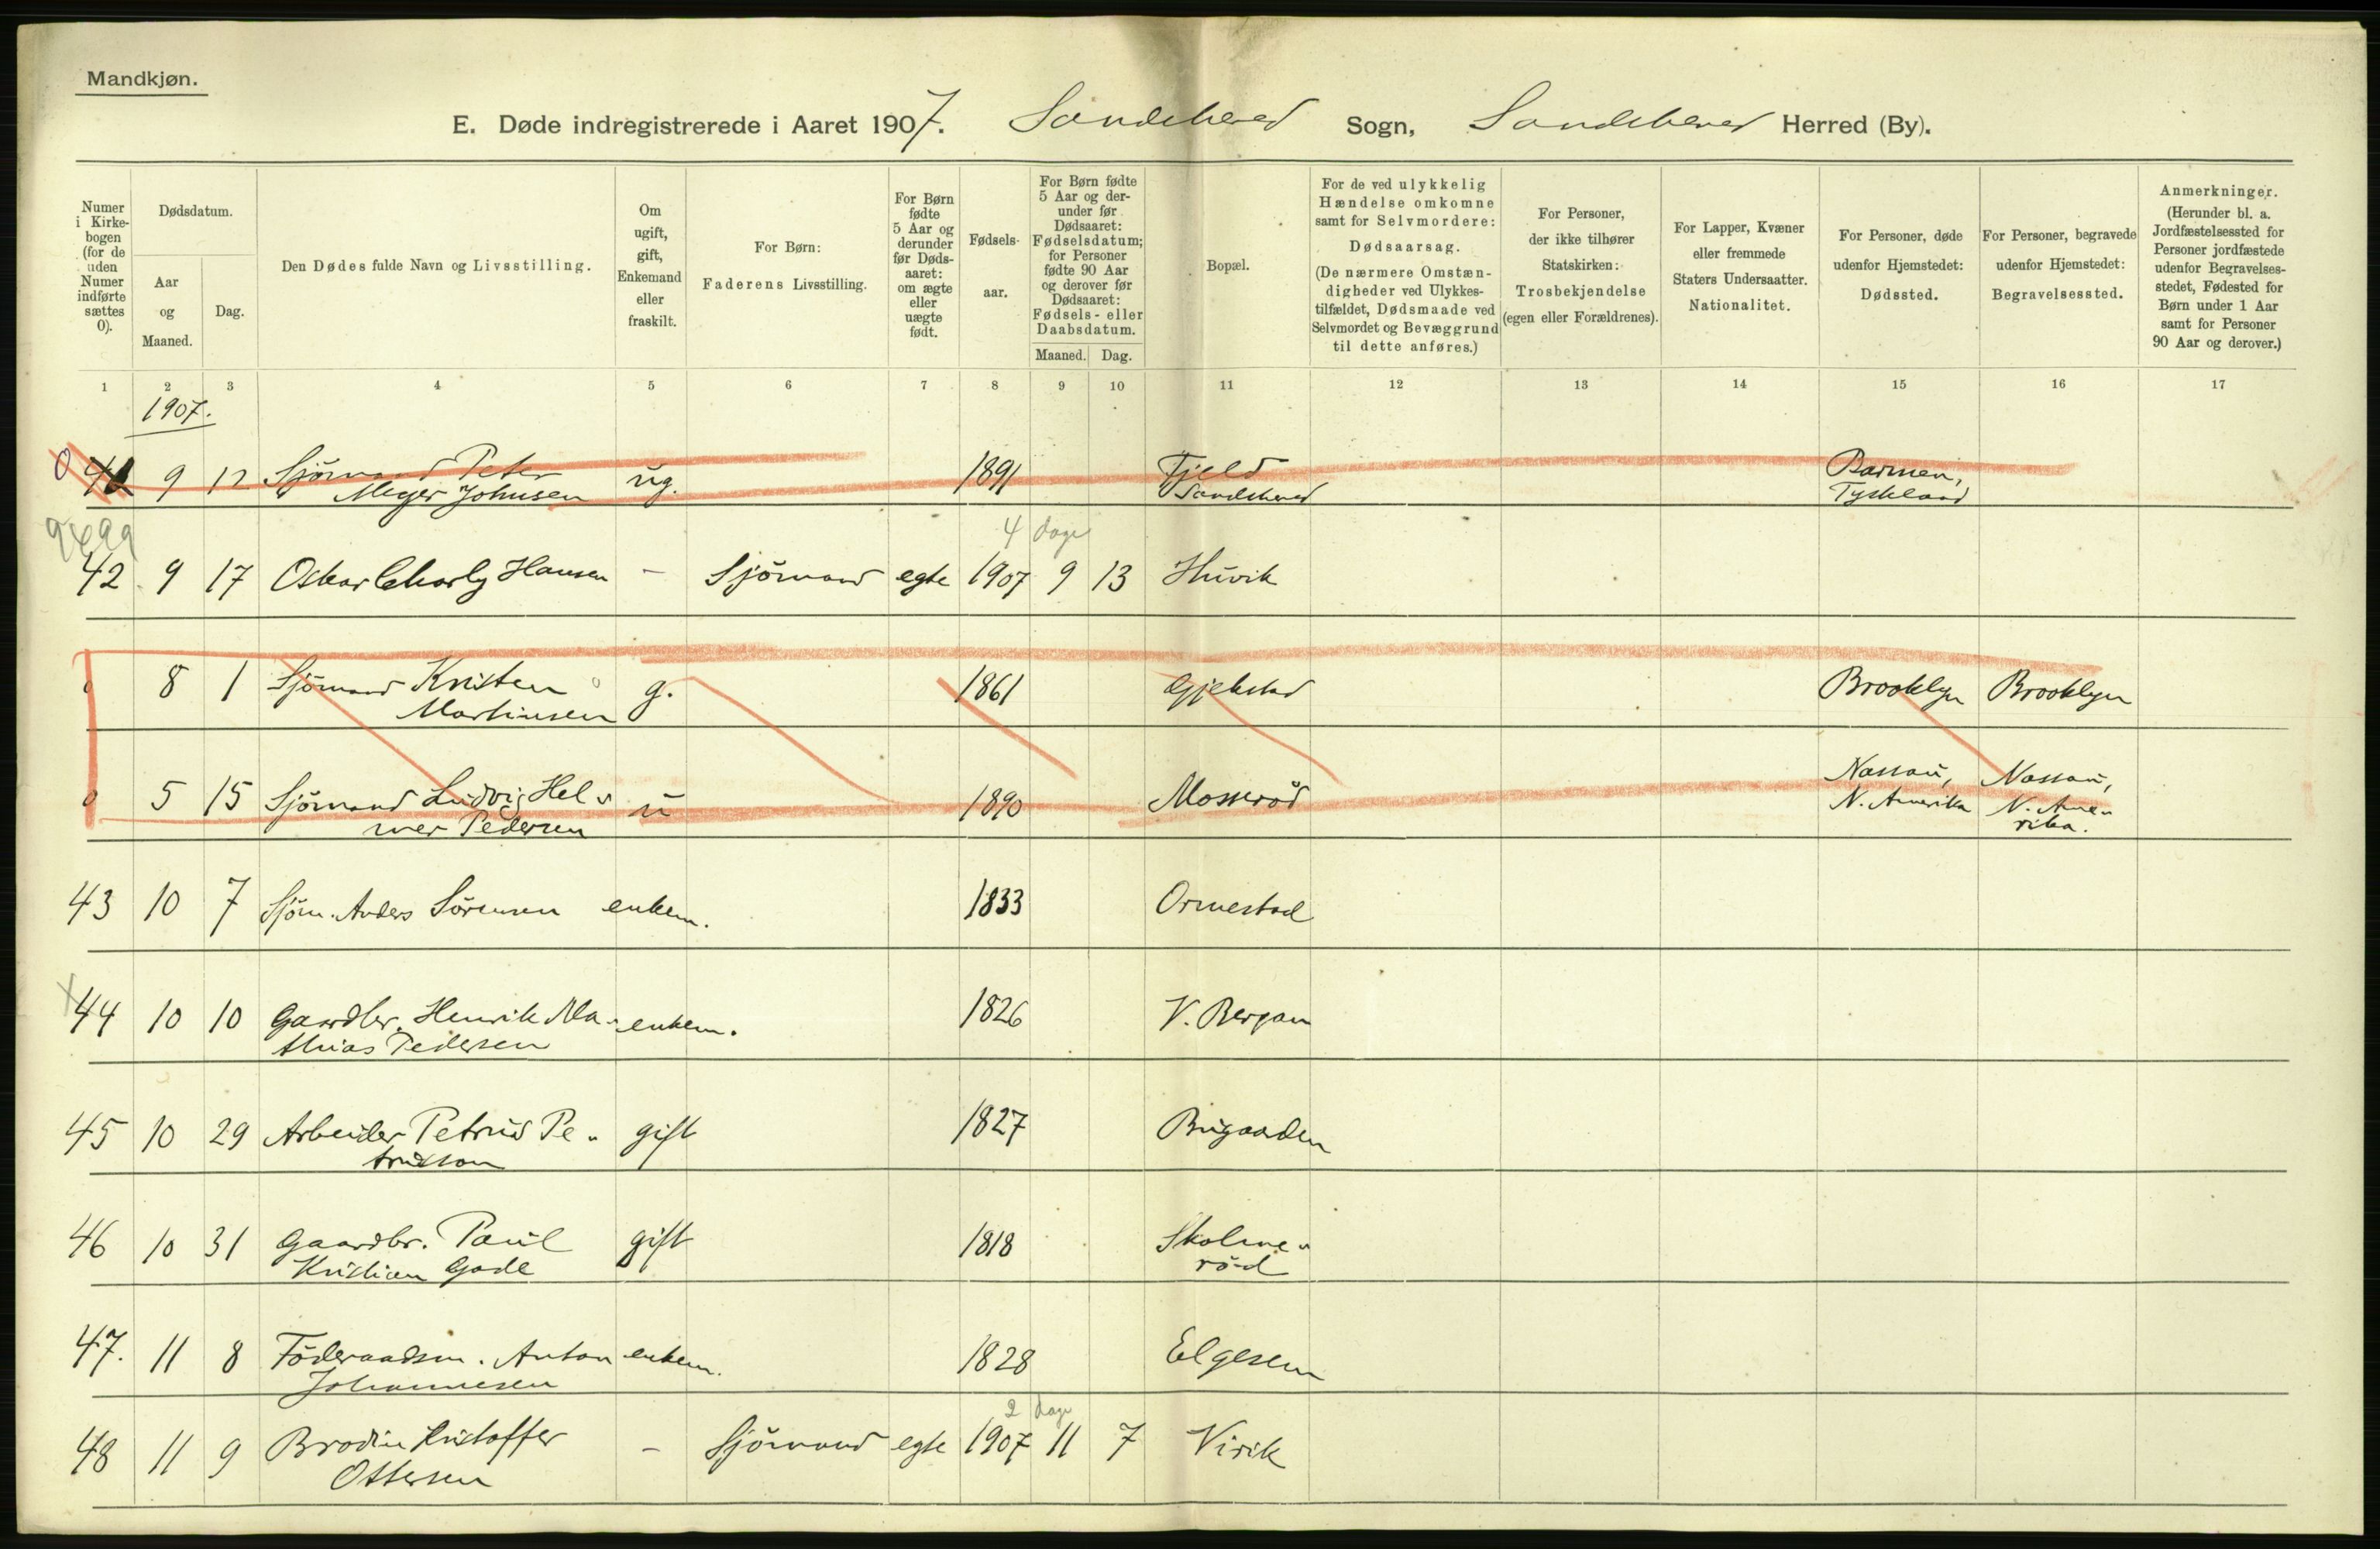 Mandkjøn.
E. Døde indregistrerede i Aaret 1907. Sandeherred Sogn, Sandeherred Herred (By).
Numer i Kirkebogen (for de uden Numer indførte sættes 0).
Dødsdatum.
Aar og Maaned.
Dag.
Den Dødes fulde Navn og Livsstilling.
Om ugift, gift, Enkemand eller fraskilt.
For Børn: Faderens Livsstilling.
For Børn fødte 5 Aar og derunder før Dødsaaret: om ægte eller uægte født.
Fødselsaar.
For Børn fødte 5 Aar og derunder før Dødsaaret: Fødselsdatum; for Personer fødte 90 Aar og derover før Dødsaaret: Fødsels- eller Daabsdatum.
Maaned. Dag.
Bopæl.
For de ved ulykkelig Hændelse omkomne samt for Selvmordere: Dødsaarsag. (De nærmere Omstændigheder ved Ulykkestilfældet, Dødsmaade ved Selvmordet og Bevæggrund til dette anføres.)
For Personer, der ikke tilhører Statskirken: Trosbekjendelse (egen eller Forældrenes).
For Lapper, Kvæner eller fremmede Staters Undersaatter. Nationalitet.
For Personer, døde udenfor Hjemstedet: Dødssted.
For Personer, begravede udenfor Hjemstedet: Begravelsessted.
Anmerkninger. (Herunder bl. a. Jordfæstelsessted for Personer jordfæstede udenfor Begravelsesstedet, Fødested for Børn under 1 Aar samt for Personer 90 Aar og derover.)
1 2 3 4 5 6 7 8 9 10 11 12 13 14 15 16 17
1907.
0 41 9 12 Sjömand Peter Meyer Johnsen ug. 1891 Fjeld Sandeherred Barmen, Tyskland
4 dage
42 9 17 Oskar Charly Hansen - Sjömand egte 1907 9 13 Huvik
0 8 1 Sjömand Kristen Martinsen g. 1861 Gjekstad Brooklyn Brooklyn
0 5 15 Sjömand Ludvig Helmer Pedersen u 1890 Mosseröd Nassau, N. Amerika Nassau, N. Amerika.
43 10 7 Sjöm. Anders Sörensen enkem. 1833 Ormestad
44 10 10 Gaardbr. Henrik Mathias Pedersen enkem. 1826 V. Bergan
45 10 29 Arbeider Petrus Petrusson gift 1827 Bugaarden
46 10 31 Gaardbr. Paul Kristian Gade gift 1818 Skolmeröd
47. 11 8 Föderaadsm. Anton Johannesen enkem. 1828 Elgesem
2 dage
48 11 9 Brodin Kristoffer Ottersen - Sjömand egte 1907 11 7 Virik